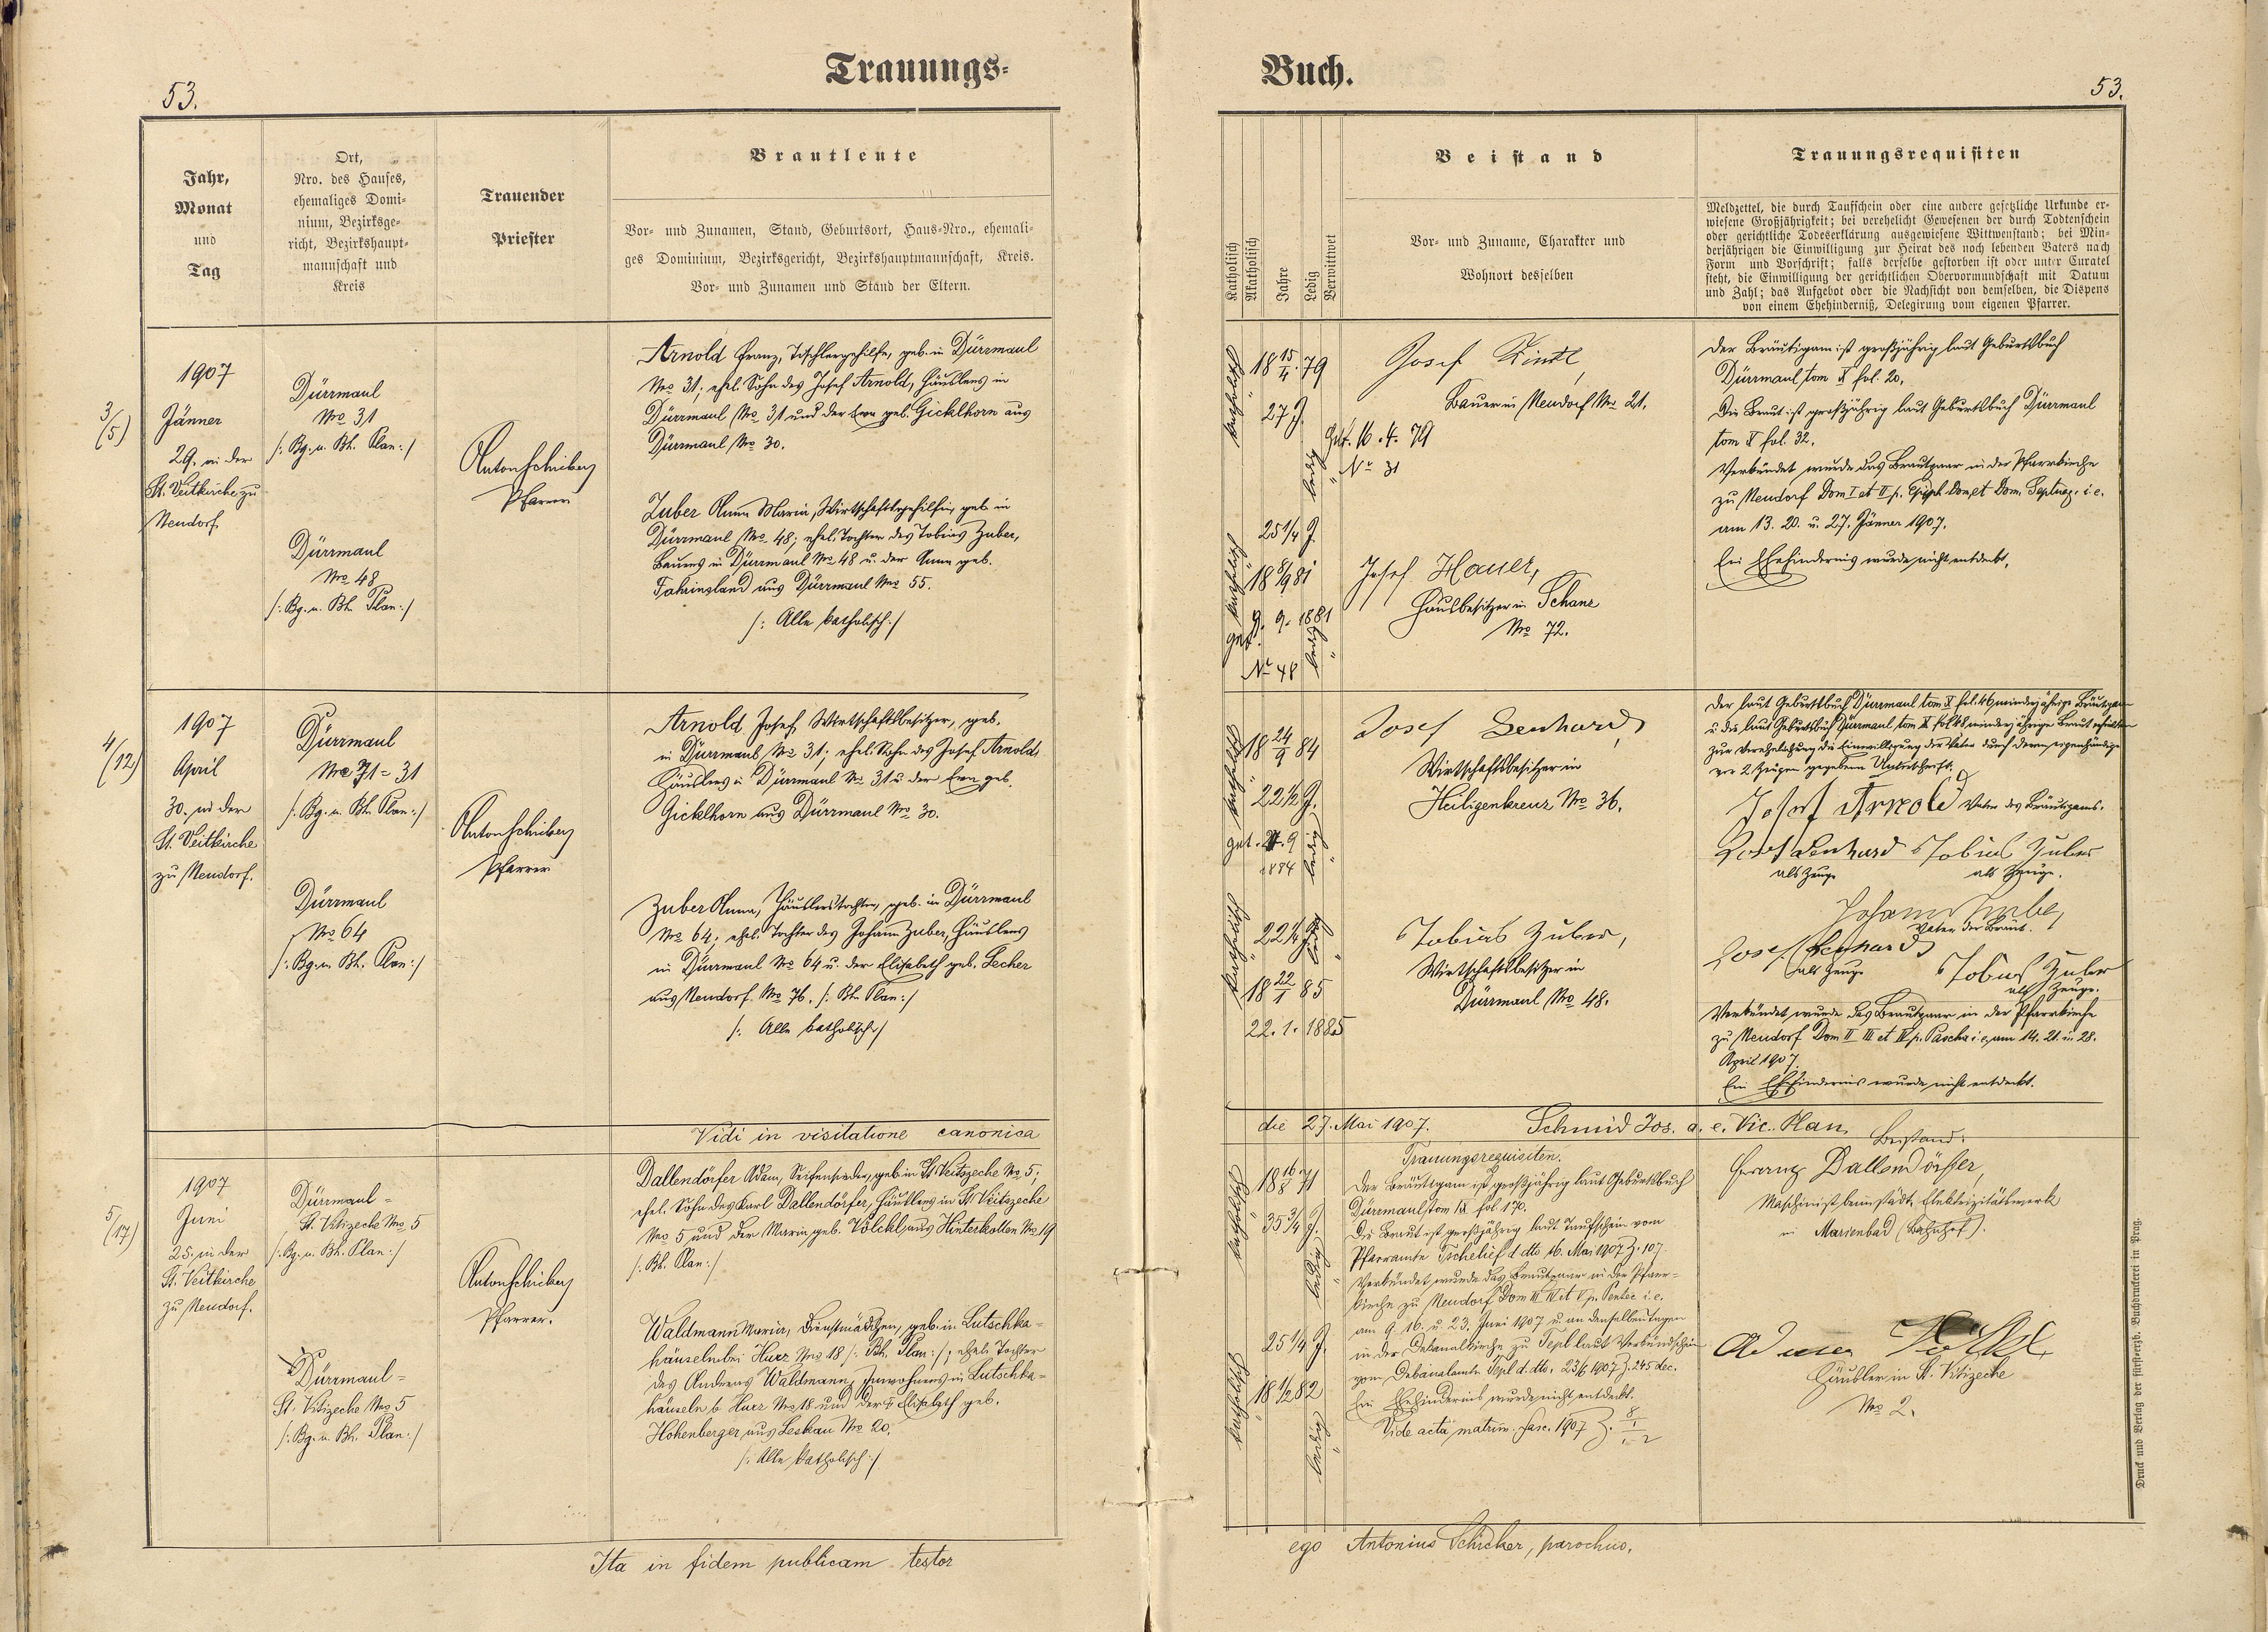 53.
Trauungs-
Jahr,
Monat
und
Tag
Ort,
Nro. des Hauses,
ehemaliges Domi-
nium, Bezirksge-
richt, Bezirkshaupt-
mannschaft und
Kreis
Trauender
Priester
Brautleute
Vor- und Zunamen, Stand, Geburtsort, Haus-Nro., ehemali-
ges Dominium, Bezirksgericht, Bezirkshauptmannschaft, Kreis.
Vor- und Zunamen und Stand der Eltern.
3/(5)
1907
Jänner
29. in der
St. Veitkirche zu
Neudorf.
Dürrmaul
No 31
/: Bg. u. Bh. Plan :/
Dürrmaul
No 48
/: Bg. u. Bh. Plan :/
Anton Schicker
Pfarrer
Arnold Franz, Tischlergehilfe, geb. in Dürrmaul
No 31; ehel. Sohn des Josef Arnold, Häuslers in
Dürrmaul No 31 und der Eva geb. Gicklhorn aus
Dürrmaul No 30.
Zuber Anna Maria, Wirtschaftsgehilfin, geb. in
Dürrmaul No 48; ehel. Tochter des Tobias Zuber,
Bauers in Dürrmaul No 48 u. der Anna geb.
aus Dürrmaul No 55.
/: Alle katholisch :/
4/(12)
1907
April
30. in der
St. Veitkirche
zu Neudorf.
Dürrmaul
No 71 = 31
/: Bg. u. Bh. Plan :/
Dürrmaul
No 64
/: Bg. u. Bh. Plan :/
Anton Schicker
Pfarrer
Arnold Josef, Wirtschaftsbesitzer, geb.
in Dürrmaul No 31; ehel. Sohn des Josef Arnold,
Häuslers in Dürrmaul No 31 u. der Eva geb.
Gicklhorn aus Dürrmaul No 30.
Zuber Anna, Häuslerstochter, geb. in Dürrmaul
No 64; ehel. Tochter des Johann Zuber, Häuslers
in Dürrmaul No 64 u. der Elisabeth geb. Lecher
aus Neudorf No 76. /: Bh. Plan :/
/: Alle katholisch :/
Vidi in visitatione canonica
5/(17)
1907
Juni
25. in der
St. Veitkirche
zu Neudorf.
Dürrmaul =
St. Vitizeche No 5
/: Bg. u. Bh. Plan :/
Dürrmaul =
St. Vitizeche No 5
/: Bg. u. Bh. Plan :/
Anton Schicker
Pfarrer.
Dallendörfer Adam, Seifensieder, geb. in St. Veitszeche No 5;
ehel. Sohn des Karl Dallendörfer, Häuslers in St. Veitszeche
No 5 und der Maria geb. Völckl aus Hinterkotten No 19
/: Bh. Plan :/
Waldmann Maria, Dienstmädchen, geb. in Lutschka-
häuseln bei Hurz No 18 /: Bh. Plan :/; ehel. Tochter
des Andreas Waldmann, Inwohners in Lutschka-
häuseln b. Hurz No 18 und der Elisabeth geb.
Hohenberger aus Leskau No 20.
/: Alle katholisch :/
Ita in fidem publicam testor
Buch.
53.
Katholisch
Akatholisch
Jahre
Ledig
Verwittwet
Beistand
Vor- und Zuname, Charakter und
Wohnort desselben
Trauungsrequisiten
Meldzettel, die durch Taufschein oder eine andere gesetzliche Urkunde er-
wiesene Großjährigkeit; bei verehelicht Gewesenen der durch Todtenschein
oder gerichtliche Todeserklärung ausgewiesene Wittwenstand; bei Min-
derjährigen die Einwilligung zur Heirat des noch lebenden Vaters nach
Form und Vorschrift; falls derselbe gestorben ist oder unter Curatel
steht, die Einwilligung der gerichtlichen Obervormundschaft mit Datum
und Zahl; das Aufgebot oder die Nachsicht von demselben, die Dispens
von einem Ehehinderniß, Delegirung vom eigenen Pfarrer.
katholisch
18 15/4 79
27 J.
Get. 16. 4. 79
No 31
ledig
Josef
Bauer in Neudorf No 21.
Der Bräutigam ist großjährig laut Geburtsbuch
Dürrmaul tom X fol. 20.
Die Braut ist großjährig laut Geburtsbuch Dürrmaul
tom X fol. 32.
Verkündet wurde das Brautpaar in der Pfarrkirche
zu Neudorf Dom I et II p. Epiph. Dom. et Dom. Septuag. i. e.
am 13. 20. u. 27. Jänner 1907.
Ein Ehehindernis wurde nicht entdeckt.
25 1/4 J.
katholisch
18 8/9 81
get. 9. 9. 1881
No 48
ledig
Josef Hauer,
Hausbesitzer in Schanz
No 72.
katholisch
18 24/9 84
22 1/2 J.
get. 24. 9
1884
ledig
Josef Lenhard
Wirtschaftsbesitzer in
Heiligenkreuz No 36.
Der laut Geburtsbuch Dürrmaul tom X fol. 46 minderjährige Bräutigam
u. die laut Geburtsbuch Dürrmaul tom X fol. 48 minderjährige Braut erhielten
zur Verehelichung die Einwilligung der Väter durch deren eigenhändige
vor 2 Zeugen gegebene Unterschrift.
Josef Arnold Vater des Bräutigams.
Josef Lenhard Tobias Zuber
als Zeuge als Zeuge.
Johann Zuber
Vater der Braut.
Josef Lenhard
als Zeuge Tobias Zuber
als Zeuge.
katholisch
22 1/4 J.
ledig
18 22/1 85
22. 1. 1885
Tobias Zuber,
Wirtschaftsbesitzer in
Dürrmaul No 48.
Verkündet wurde das Brautpaar in der Pfarrkirche
zu Neudorf Dom II III et IV p. Pascha i. e. am 14. 21. u. 28.
April 1907.
Ein Ehehindernis wurde nicht entdeckt.
die 27. Mai 1907. Schmid Jos. a. e. Vic. Plan.
Trauungsrequisiten.
Beistand:
katholisch
18 16/8 71
35 3/4 J.
ledig
Der Bräutigam ist großjährig laut Geburtsbuch
Dürrmaul tom IX fol 170.
Die Braut ist großjährig laut Taufschein vom
Pfarramte Tschelief d dto 16. Mai 1907 Z. 107.
Verkündet wurde das Brautpaar in der Pfarr-
kirche zu Neudorf Dom III IV et V p. Pentec i. e.
am 9. 16. u. 23. Juni 1907 u. an denselben Tagen
in der Dekanalkirche zu Tepl laut Verkündschein
vom Dekanalamte Tepl d. dto. 23/6 1907 Z. 245 dec.
Ein Ehehindernis wurde nicht entdeckt.
Vide acta matrim. fasc. 1907 Z.
25 1/4 J.
katholisch
18 1/2 82
ledig
Franz Dallendörfer,
Maschinist beim städt. Elektrizitätswerk
in Marienbad (Bahnhof).
Häusler in St. Vitizeche
No 2.
ego Antonius Schicker, parochus.
Druck und Verlag der fürsterzb. Buchdruckerei in Prag.